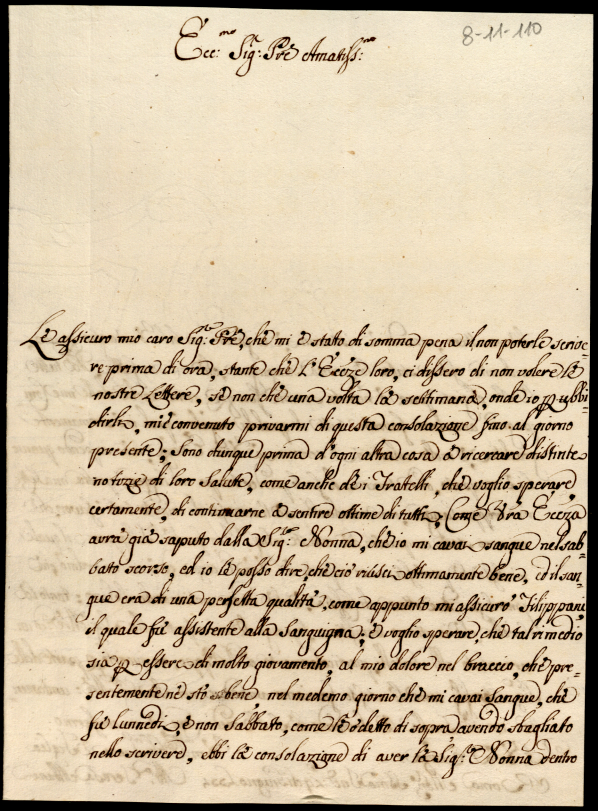 8-11-110
Ecc.mo Sig.r Pre Amatiss.mo
Le assicuro mio caro Sig.r Pre, che mi è stato di somma pena il non poterle scrive=
re prima di ora, stante che l'Ecc.ze loro, ci dissero di non volere le
nostre Lettere, se non che una volta la settimana, onde io p ubbi=
dirli, mi è convenuto privarmi di questa consolazione fino al giorno
presente; Sono dunque prima d'ogni altra cosa a ricercare distinte
notizie di loro Salute, come anche de i Fratelli, che voglio sperare
certamente, di continuarne a sentire ottime di tutti. Come Vra Ecc.za
avrà già saputo dalla Sig.ra Nonna, che io mi cavai sangue nel sab=
bato scorso, ed io le posso dire, che ciò riuscì ottimamente bene, ed il san=
gue era di una perfetta qualità, come appunto mi assicurò Filippani
il quale fù assistente alla sanguigna; e voglio sperare, che tal rimedio
sia p essere di molto giovamento, al mio dolore nel braccio, che pre=
sentemente ne stò bene, nel medemo giorno che mi cavai sangue, che
fù lunnedì, e non sabbato, come le ò detto di sopra avendo sbagliato
nello scrivere, ebbi la consolazione di aver la Sig.ra Nonna dentro